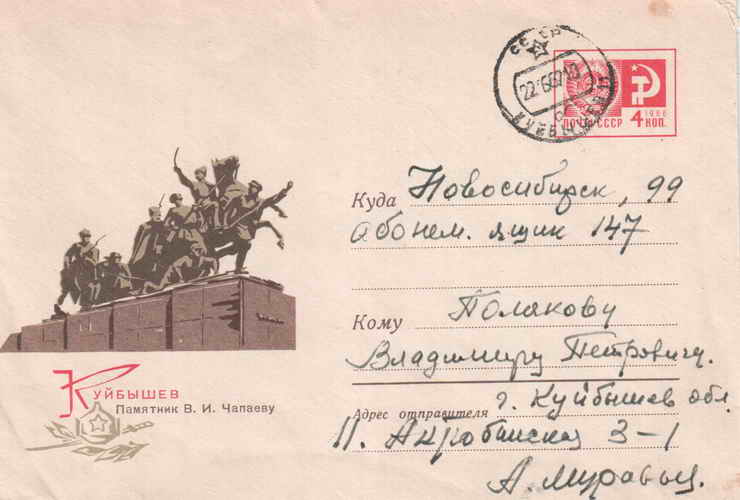 СССР
22.6.67.18
ПОЧТА СССР
1966
4 КОП.
Куда Новосибирск, 99
абонем. ящик 147
Кому Полякову
Владимиру Петровичу.
Адрес отправителя г. Куйбышев обл.
3-1
А. Муравьц.
КУЙБЫШЕВ
Памятник В. И. Чапаеву